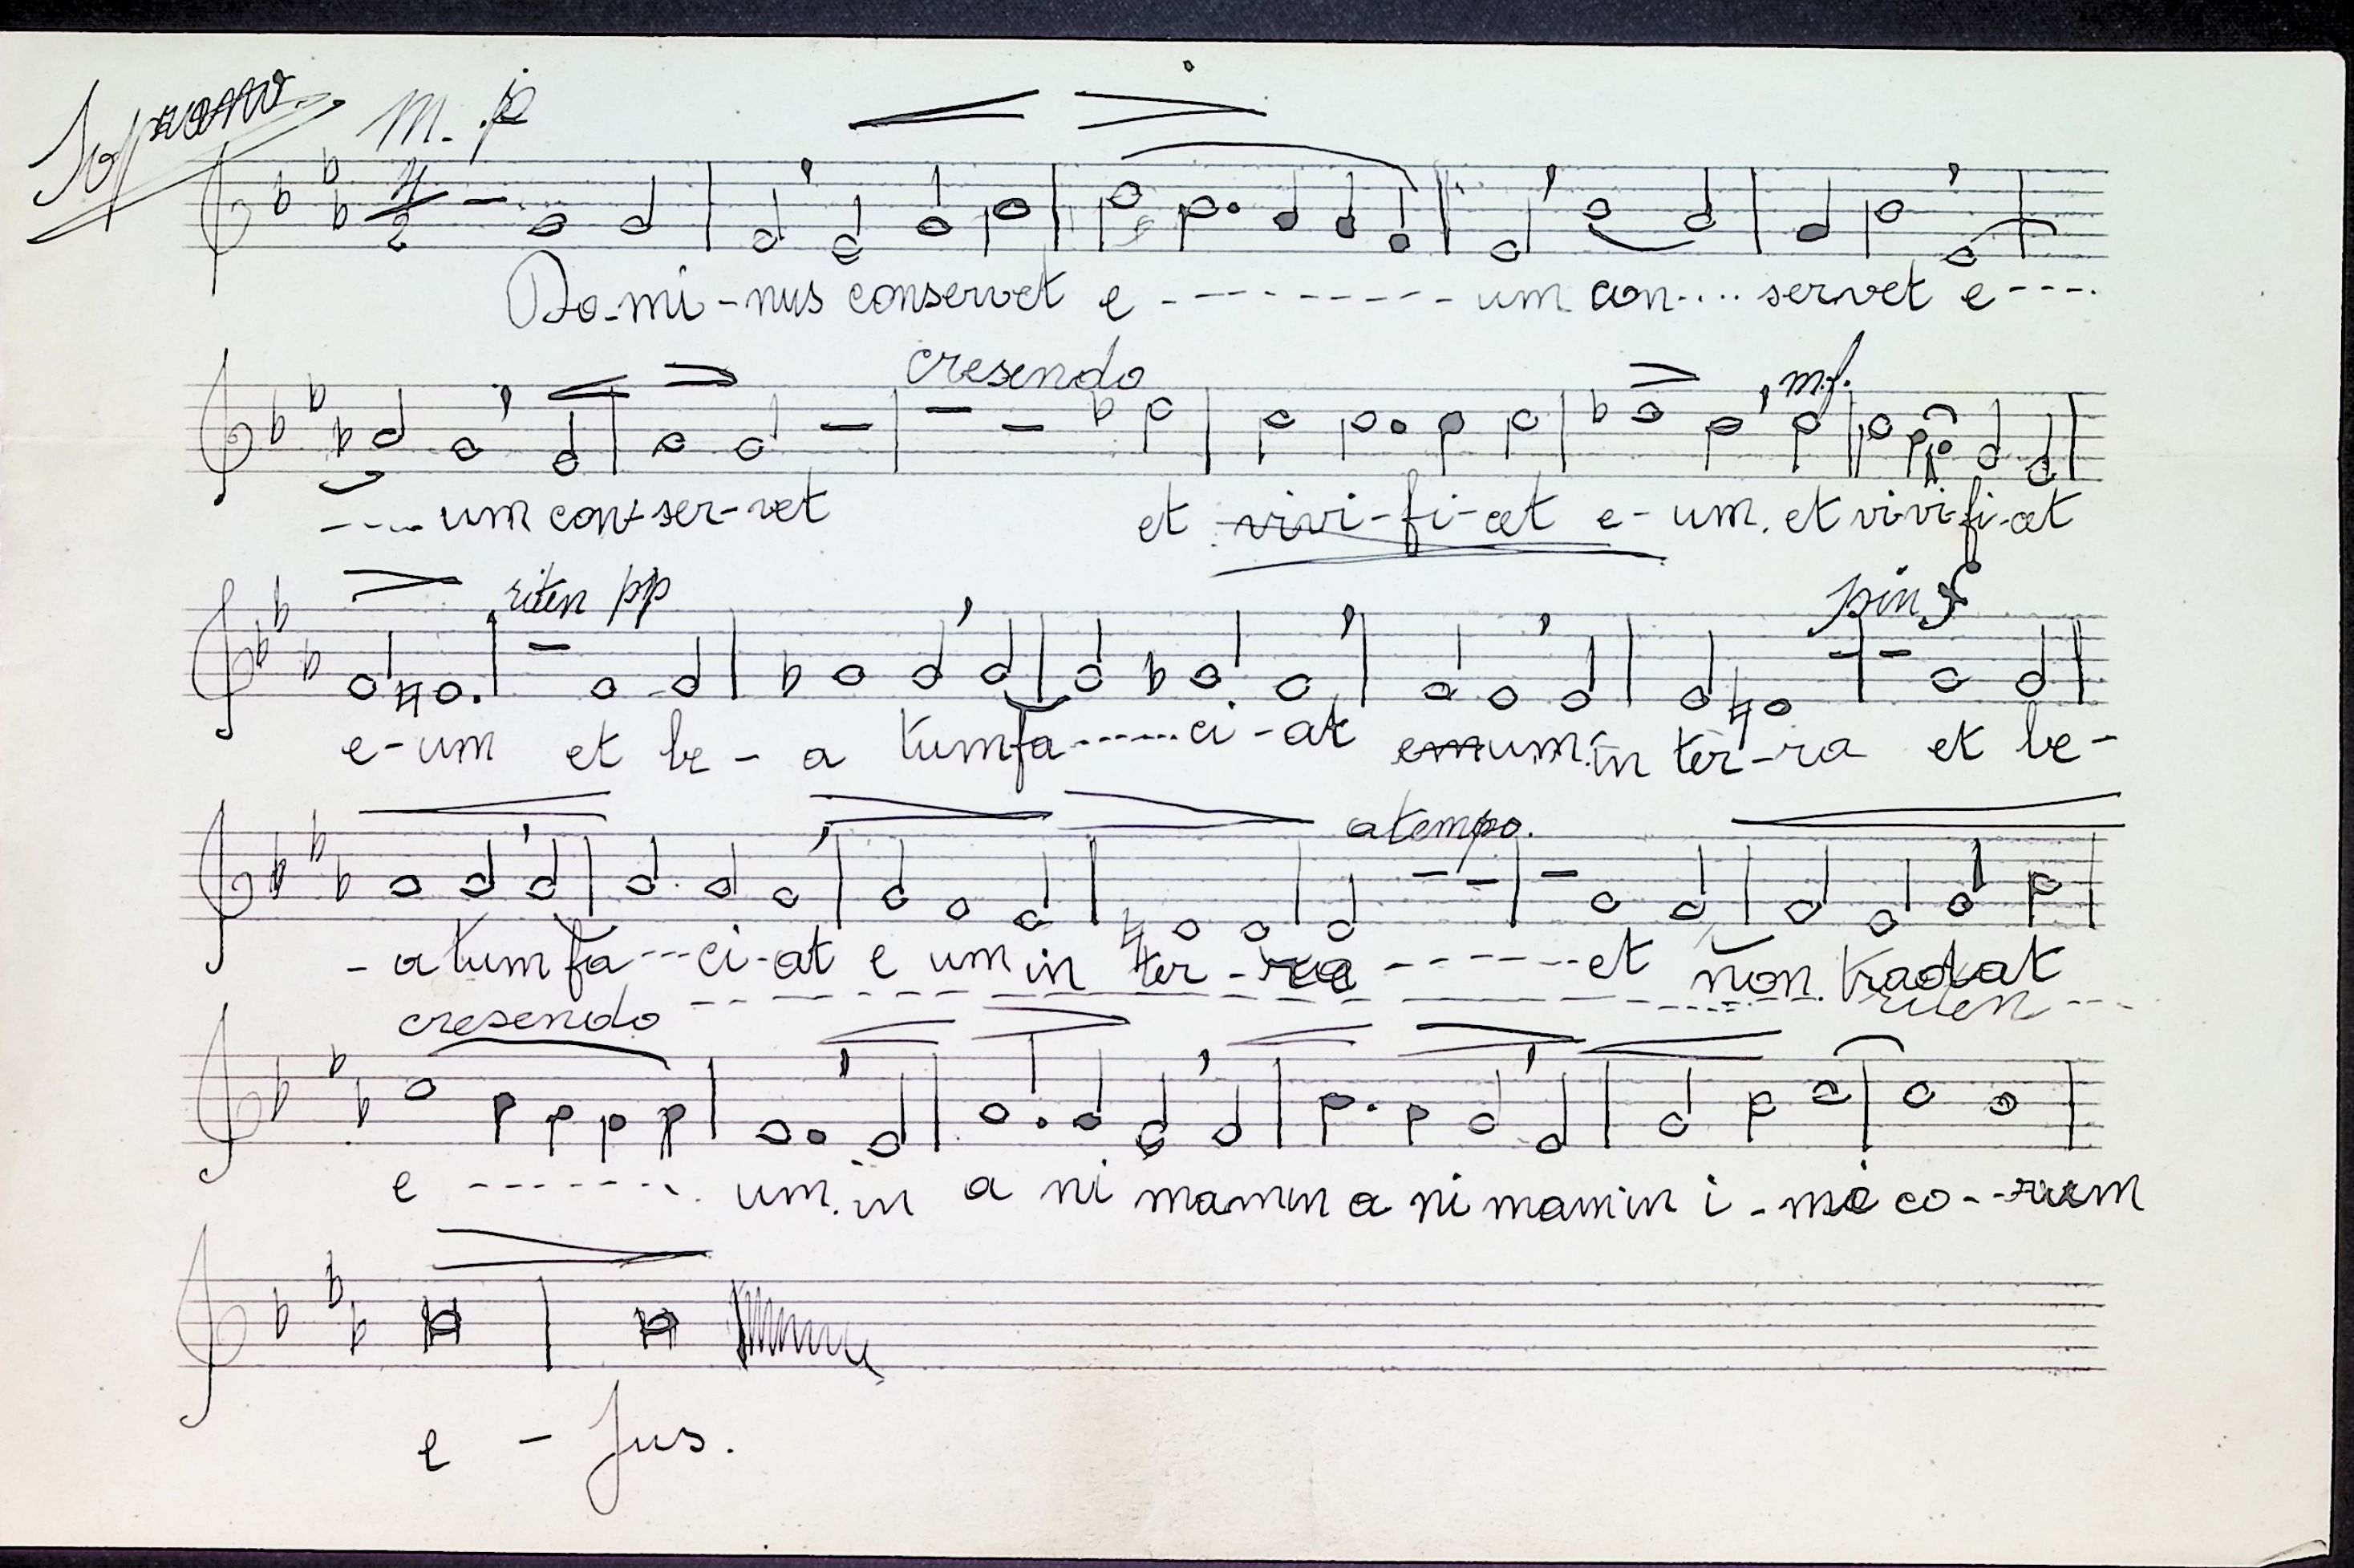 Soprano m.p
4
2
Do-mi-nus conservet e --------- um con.... servet e----
cresendo m.f.
---- um con-ser-vet et vivi-fi-cet e-um. et vivifi-cet
riten pp piu f
e-um et be-a tumfa------ci-at emum in ter-ra et be-
a tempo.
-atumfa---ci-at e um in ter-ra -------et non tradat
cresendo riten ---
e ------- um. in a ni mamin a ni mamin i-mi co--rum
e - jus.